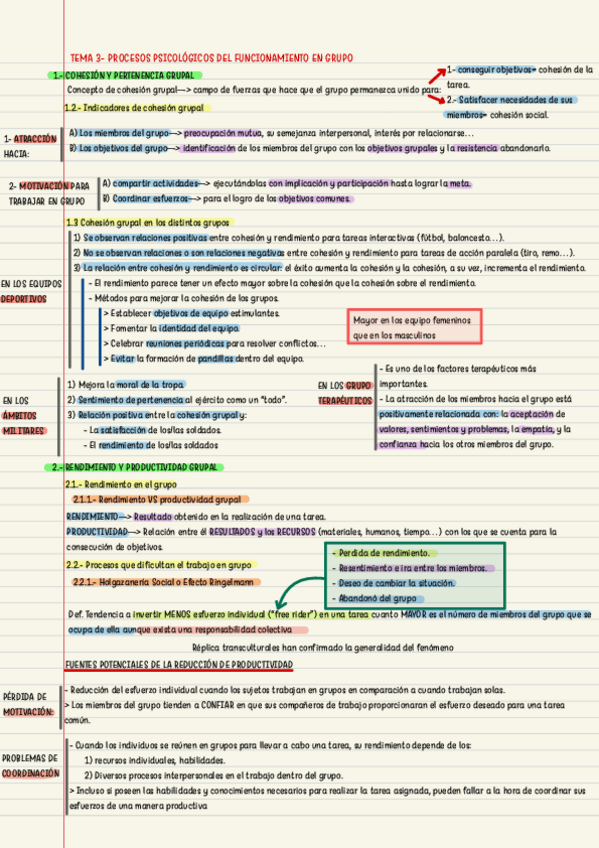 TEMA 3- PROCESOS PSICOLÓGICOS DEL FUNCIONAMIENTO EN GRUPO
1.- COHESIÓN Y PERTENENCIA GRUPAL
Concepto de cohesión grupal—> campo de fuerzas que hace que el grupo permanezca unido para:
1.- conseguir objetivos= cohesión de la
tarea.
2.- Satisfacer necesidades de sus
miembros= cohesión social.
1.2.- Indicadores de cohesión grupal
1- ATRACCIÓN
HACIA:
A) Los miembros del grupo—> preocupación mutua, su semejanza interpersonal, interés por relacionarse...
B) Los objetivos del grupo—> identificación de los miembros del grupo con los objetivos grupales y la resistencia abandonarlo.
2- MOTIVACIÓN PARA
TRABAJAR EN GRUPO
A) compartir actividades—> ejecutándolas con implicación y participación hasta lograr la meta.
B) Coordinar esfuerzos—> para el logro de los objetivos comunes.
1.3 Cohesión grupal en los distintos grupos
EN LOS EQUIPOS
DEPORTIVOS
1) Se observan relaciones positivas entre cohesión y rendimiento para tareas interactivas (fútbol, baloncesto...).
2) No se observan relaciones o son relaciones negativas entre cohesión y rendimiento para tareas de acción paralela (tiro, remo...).
3) La relación entre cohesión y rendimiento es circular: el éxito aumenta la cohesión y la cohesión, a su vez, incrementa el rendimiento.
- El rendimiento parece tener un efecto mayor sobre la cohesión que la cohesión sobre el rendimiento.
- Métodos para mejorar la cohesión de los grupos.
> Establecer objetivos de equipo estimulantes.
> Fomentar la identidad del equipo.
> Celebrar reuniones periódicas para resolver conflictos...
> Evitar la formación de pandillas dentro del equipo.
Mayor en los equipo femeninos
que en los masculinos
EN LOS
ÁMBITOS
MILITARES
1) Mejora la moral de la tropa
2) Sentimiento de pertenencia al ejército como un "todo".
3) Relación positiva entre la cohesión grupal y:
- La satisfacción de los/las soldados.
- El rendimiento de los/las soldados
EN LOS GRUPO
TERAPÉUTICOS
- Es uno de los factores terapéuticos más
importantes.
- La atracción de los miembros hacia el grupo está
positivamente relacionada con: la aceptación de
valores, sentimientos y problemas, la empatía, y la
confianza hacia los otros miembros del grupo.
2.- RENDIMIENTO Y PRODUCTIVIDAD GRUPAL
2.1.- Rendimiento en el grupo
2.1.1.- Rendimiento VS productividad grupal
RENDIMIENTO—> Resultado obtenido en la realización de una tarea.
PRODUCTIVIDAD—> Relación entre él RESULTADOS y los RECURSOS (materiales, humanos, tiempo...) con los que se cuenta para la
consecución de objetivos.
2.2- Procesos que dificultan el trabajo en grupo
2.2.1.- Holgazanería Social o Efecto Ringelmann
- Perdida de rendimiento.
- Resentimiento e ira entre los miembros.
- Deseo de cambiar la situación.
- Abandonó del grupo
Def. Tendencia a invertir MENOS esfuerzo individual ("free rider") en una tarea cuanto MAYOR es el número de miembros del grupo que se
ocupa de ella aunque exista una responsabilidad colectiva
Réplica transculturales han confirmado la generalidad del fenómeno
FUENTES POTENCIALES DE LA REDUCCIÓN DE PRODUCTIVIDAD
PÉRDIDA DE
MOTIVACIÓN:
- Reducción del esfuerzo individual cuando los sujetos trabajan en grupos en comparación a cuando trabajan solas.
> Los miembros del grupo tienden a CONFIAR en que sus compañeros de trabajo proporcionaran el esfuerzo deseado para una tarea
común.
PROBLEMAS DE
COORDINACIÓN
- Cuando los individuos se reúnen en grupos para llevar a cabo una tarea, su rendimiento depende de los:
1) recursos individuales, habilidades.
2) Diversos procesos interpersonales en el trabajo dentro del grupo.
> Incluso si poseen las habilidades y conocimientos necesarios para realizar la tarea asignada, pueden fallar a la hora de coordinar sus
esfuerzos de una manera productiva